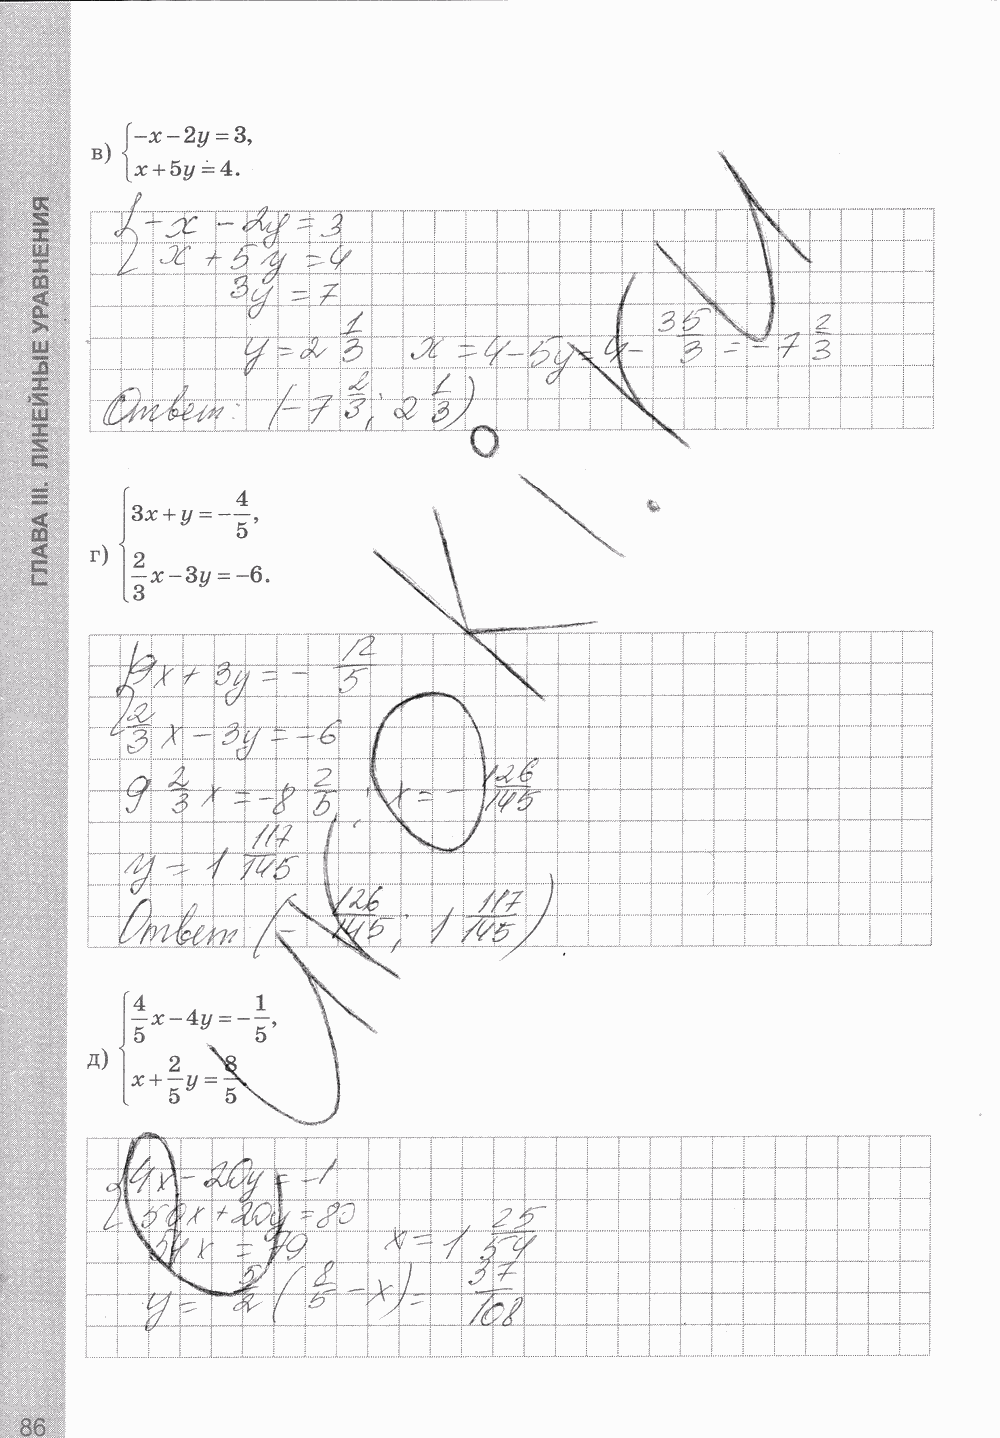 ГЛАВА III. ЛИНЕЙНЫЕ УРАВНЕНИЯ
в) { -x - 2y = 3,
x + 5y = 4.
{ -x - 2y = 3
x + 5y = 4
3y = 7
y = 2 1/3 x = 4 - 5y = 4 - 35/3 = -7 2/3
Ответ: (-7 2/3; 2 1/3)
г) { 3x + y = -4/5,
2/3 x - 3y = -6.
{ 9x + 3y = - 12/5
2/3 x - 3y = -6
9 2/3 x = -8 2/5 ; x = - 126/145
y = 1 117/145
Ответ (- 126/145; 1 117/145)
д) { 4/5 x - 4y = -1/5,
x + 2/5 y = 8/5.
{ 4x - 20y = -1
50x + 20y = 80
54x = 79 x = 1 25/54
y = 5/2 (8/5 - x) = 37/108
86